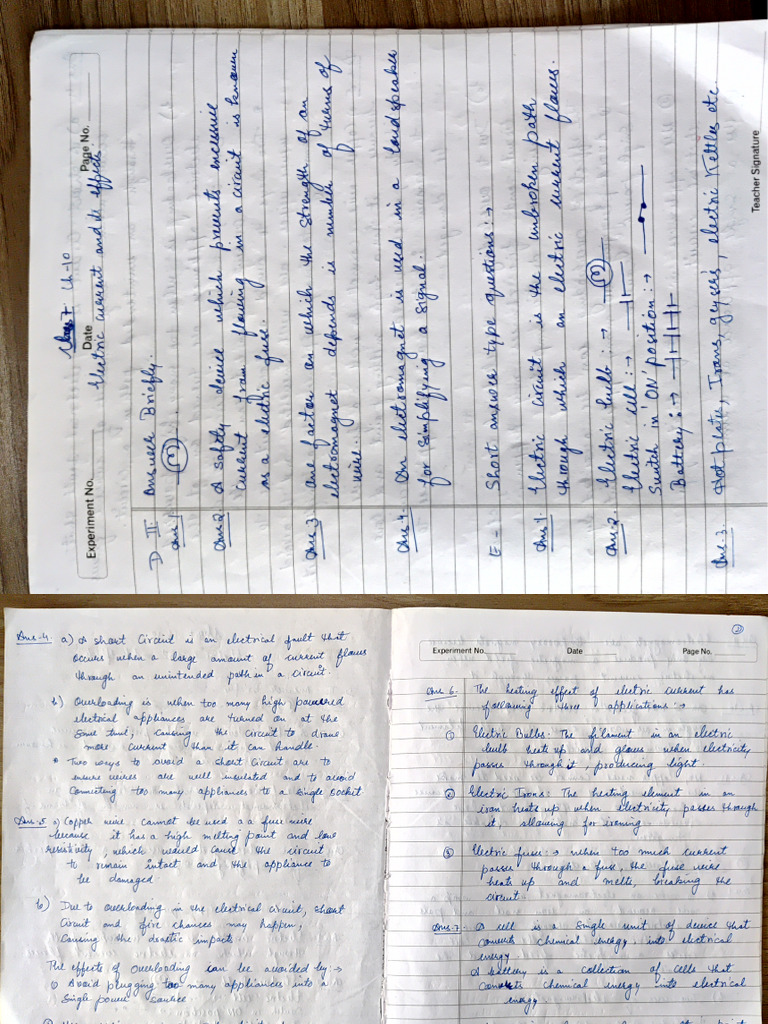 Class 7 Ch-10
Experiment No. Date Page No.
Electric current and its effects
D II Answer Briefly.
Ans 1
Ans.2 A safty device which prevents excessive
current from flowing in a circuit is known
as a electric fuse.
Ans.3 One factor on which the strength of an
electromagnet depends is number of turns of
wire.
Ans.4. An electromagnet is used in a loudspeaker
for simplifying a signal.
E - Short answer type questions :→
Ans 1. Electric circuit is the unbroken path
through which an electric current flows.
Ans.2. Electric bulb :→
Electric cell :→
Switch in 'ON' position :→
Battery :→
Ans.3. Hot plates, Irons, geysers, electric Kettles etc.
Teacher Signature
Ans-4. a) A short Circuit is an electrical fault that
occurs when a large amount of current flows
through an unintended path in a circuit.
b) Overloading is when too many high powered
electrical appliances are turned on at the
same time, causing the circuit to draw
more current than it can handle.
* Two ways to avoid a short Circuit are to
insure wires are well insulated and to avoid
Connecting too many appliances to a single socket
Ans.5 a) Copper wire cannot be used a a fuse wire
because it has a high melting point and low
resistivity, which would cause the circuit
to remain intact and the appliance to
be damaged
b) Due to overloading in the electrical circuit, short
Circuit and fire chances may happen,
Causing the drastic impacts.
The effects of overloading can be avoided by :→
① Avoid plugging too many appliances into a
Single power source.
②
Experiment No. Date Page No.
Ans 6. The heating effect of electric current has
following three applications :→
① Electric Bulbs: The filament in an electric
bulb heats up and glows when electricity
passes through it, producing light.
② Electric Irons: The heating element in an
iron heats up when electricity passes through
it, allowing for ironing.
③ Electric fuse :→ when too much current
passes through a fuse, the fuse wire
heats up and melts, breaking the
circuit.
Ans-7. A cell is a single unit of device that
converts chemical energy into electrical
energy.
A battery is a collection of cells that
converts chemical energy into electrical
energy.